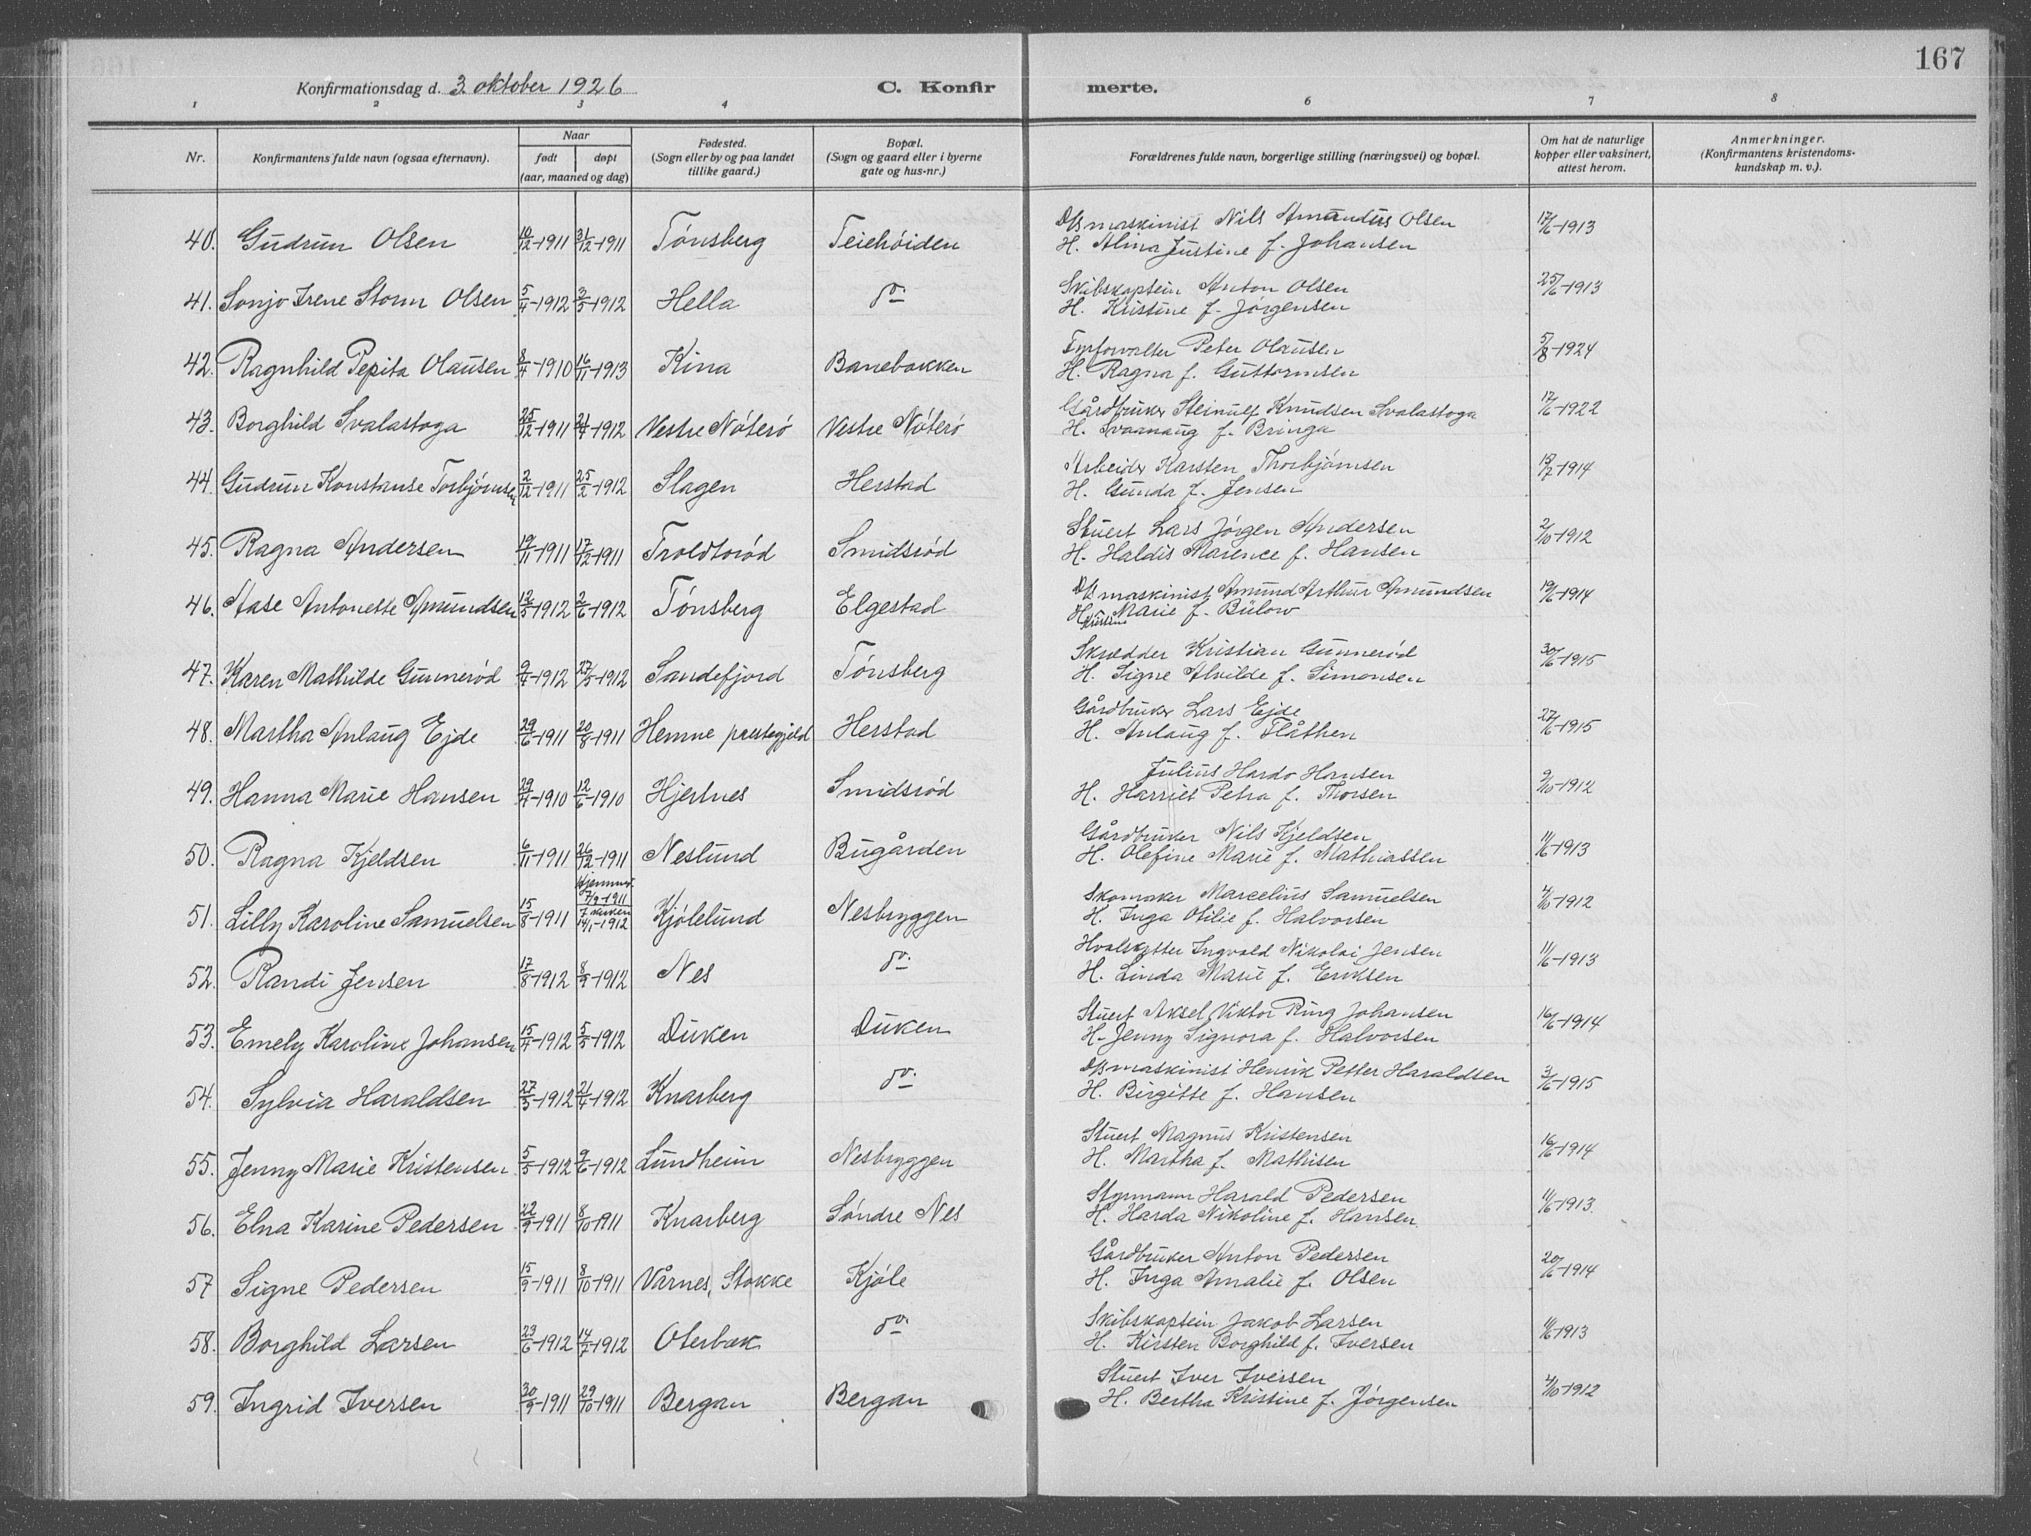 167
Konfirmationsdag d. 3. oktober 1926 C. Konfirmerte.
1 2 3 4 6 7 8
Nr. Konfirmantens fulde navn (ogsaa efternavn). Naar født døpt (aar, maaned og dag) Fødested. (Sogn eller by og paa landet tillike gaard.) Bopæl. (Sogn og gaard eller i byerne gate og hus-nr.) Forældrenes fulde navn, borgerlige stilling (næringsvei) og bopæl. Om hat de naturlige kopper eller vaksinert, attest herom. Anmerkninger. (Konfirmantens kristendoms-kundskap m. v.).
40. Gudrun Olsen 10/12-1911 31/12-1911 Tønsberg Teiehöiden D/S maskinist Nils Amandus Olsen 17/6-1913
H. Alina Justine f. Johansen
41. Sonjo Irene Storm Olsen 5/4-1912 3/5-1912 Hella do Skibskaptein Anton Olsen 25/6-1913
H. Kristine f. Jørgensen
42. Ragnhild Pepita Olausen 8/4-1910 16/11-1913 Kina Banebakken Fyrforvalter Peter Olausen 5/8-1924
H. Ragna f. Guttormsen
43. Borghild Svalastoga 25/12-1911 21/4-1912 Vestre Nöterö Vestre Nöterö Gårdbruker Steinulf Knudsen Svalastoga 17/6-1922
H. Svaanaug f. Bringa
44. Gudrun Konstanse Torbjörnsen 2/12-1911 25/2-1912 Slagen Herstad Arbeider Karsten Thorbjörnsen 18/7-1914
H. Gunda f. Jensen
45. Ragna Andersen 19/11-1911 17/12-1911 Troldtoröd Smidsröd Stuert Lars Jörgen Andersen 2/10-1912
H. Haldis Marence f. Hansen
46. Aase Antonette Amundsen 12/5-1912 2/6-1912 Tønsberg Elgestad D/S maskinist Amund Arthur Amundsen 19/6-1914
H. Kristine Marie f. Bülow
47. Karen Mathilde Gunneröd 9/4-1912 27/5-1912 Sandefjord Tønsberg Skrædder Kristian Gunneröd 30/6-1915
H. Signe Alvilde f. Simonsen
48. Martha Anlaug Ejde 29/6-1911 20/8-1911 Hemne prestegjeld Herstad Gårdbruker Lars Ejde 27/6-1915
H. Anlaug f. Flåthen
49. Hanna Marie Hansen 29/4-1910 12/6-1910 Hjertnes Smidsröd Julius Hardo Hansen 9/10-1912
H. Harriet Petra f. Thorsen
50. Ragna Kjeldsen 6/11-1911 26/12-1911 Neslund Bugården Gårdbruker Nils Kjeldsen 11/6-1913
H. Olefine Marie f. Mathiassen
51. Lilly Karoline Samuelsen 15/8-1911 Hjemmed. 7/9-1911 I kirken 14/1-1912 Kjölelund Nesbryggen Skomaker Marcelius Samuelsen 4/10-1912
H. Inga Otilie f. Halvorsen
52. Randi Jensen 17/8-1912 8/9-1912 Nes do Hvalskytter Ingvald Nikolai Jensen 11/6-1913
H. Linda Marie f. Eriksen
53. Emely Karoline Johansen 15/4-1912 5/5-1912 Duken Duken Stuert Aksel Viktor Ring Johansen 16/6-1914
H. Jenny Signora f. Halvorsen
54. Sylvia Haraldsen 27/3-1912 21/4-1912 Knarberg do D/S maskinist Henrik Petter Haraldsen 3/6-1915
H. Birgitte f. Hansen
55. Jenny Marie Kristensen 5/5-1912 9/6-1912 Lundheim Nesbryggen Stuert Magnus Kristensen 16/6-1914
H. Martha f. Mathisen
56. Elna Karine Pedersen 22/9-1911 8/10 1911 Knarberg Söndre Nes Styrmann Harald Pedersen 11/6-1913
H. Harda Nikoline f. Hansen
57 Signe Pedersen 15/9-1911 8/10-1911 Vårnes, Stokke Kjöle Gårdbruker Anton Pedersen 20/6-1914
H. Inga Amalie f. Olsen
58. Borghild Larsen 23/6-1912 14/7-1912 Oterbæk do Skibskaptein Jakob Larsen 11/6-1913
H. Kirsten Borghild f. Iversen
59. Ingrid Iversen 30/9-1911 29/10-1911 Bergan Bergan Stuert Iver Iversen 4/10-1912
H. Bertha Kristine f. Jörgensen